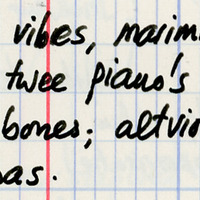 vibes, marim
twee piano's
bones; altvio
bas.